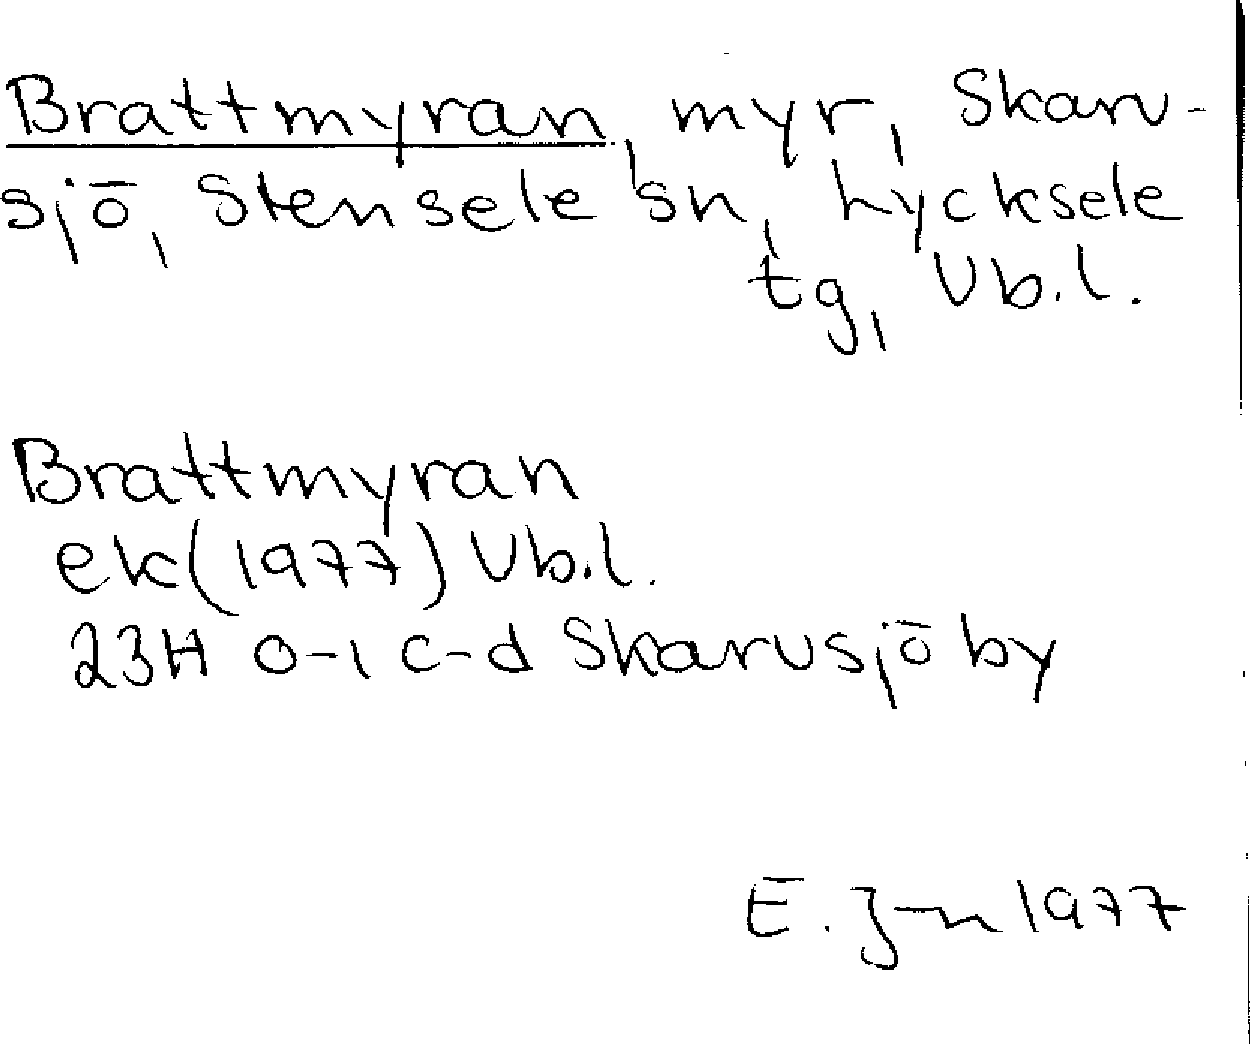 Brattmyran, myr, Skarv-
sjö, Stensele sn, Lycksele
tg, Vb.l.
Brattmyran
ek (1977) Vb.l.
23H 0-1 c-d Skarvsjöby
E. J-n 1977